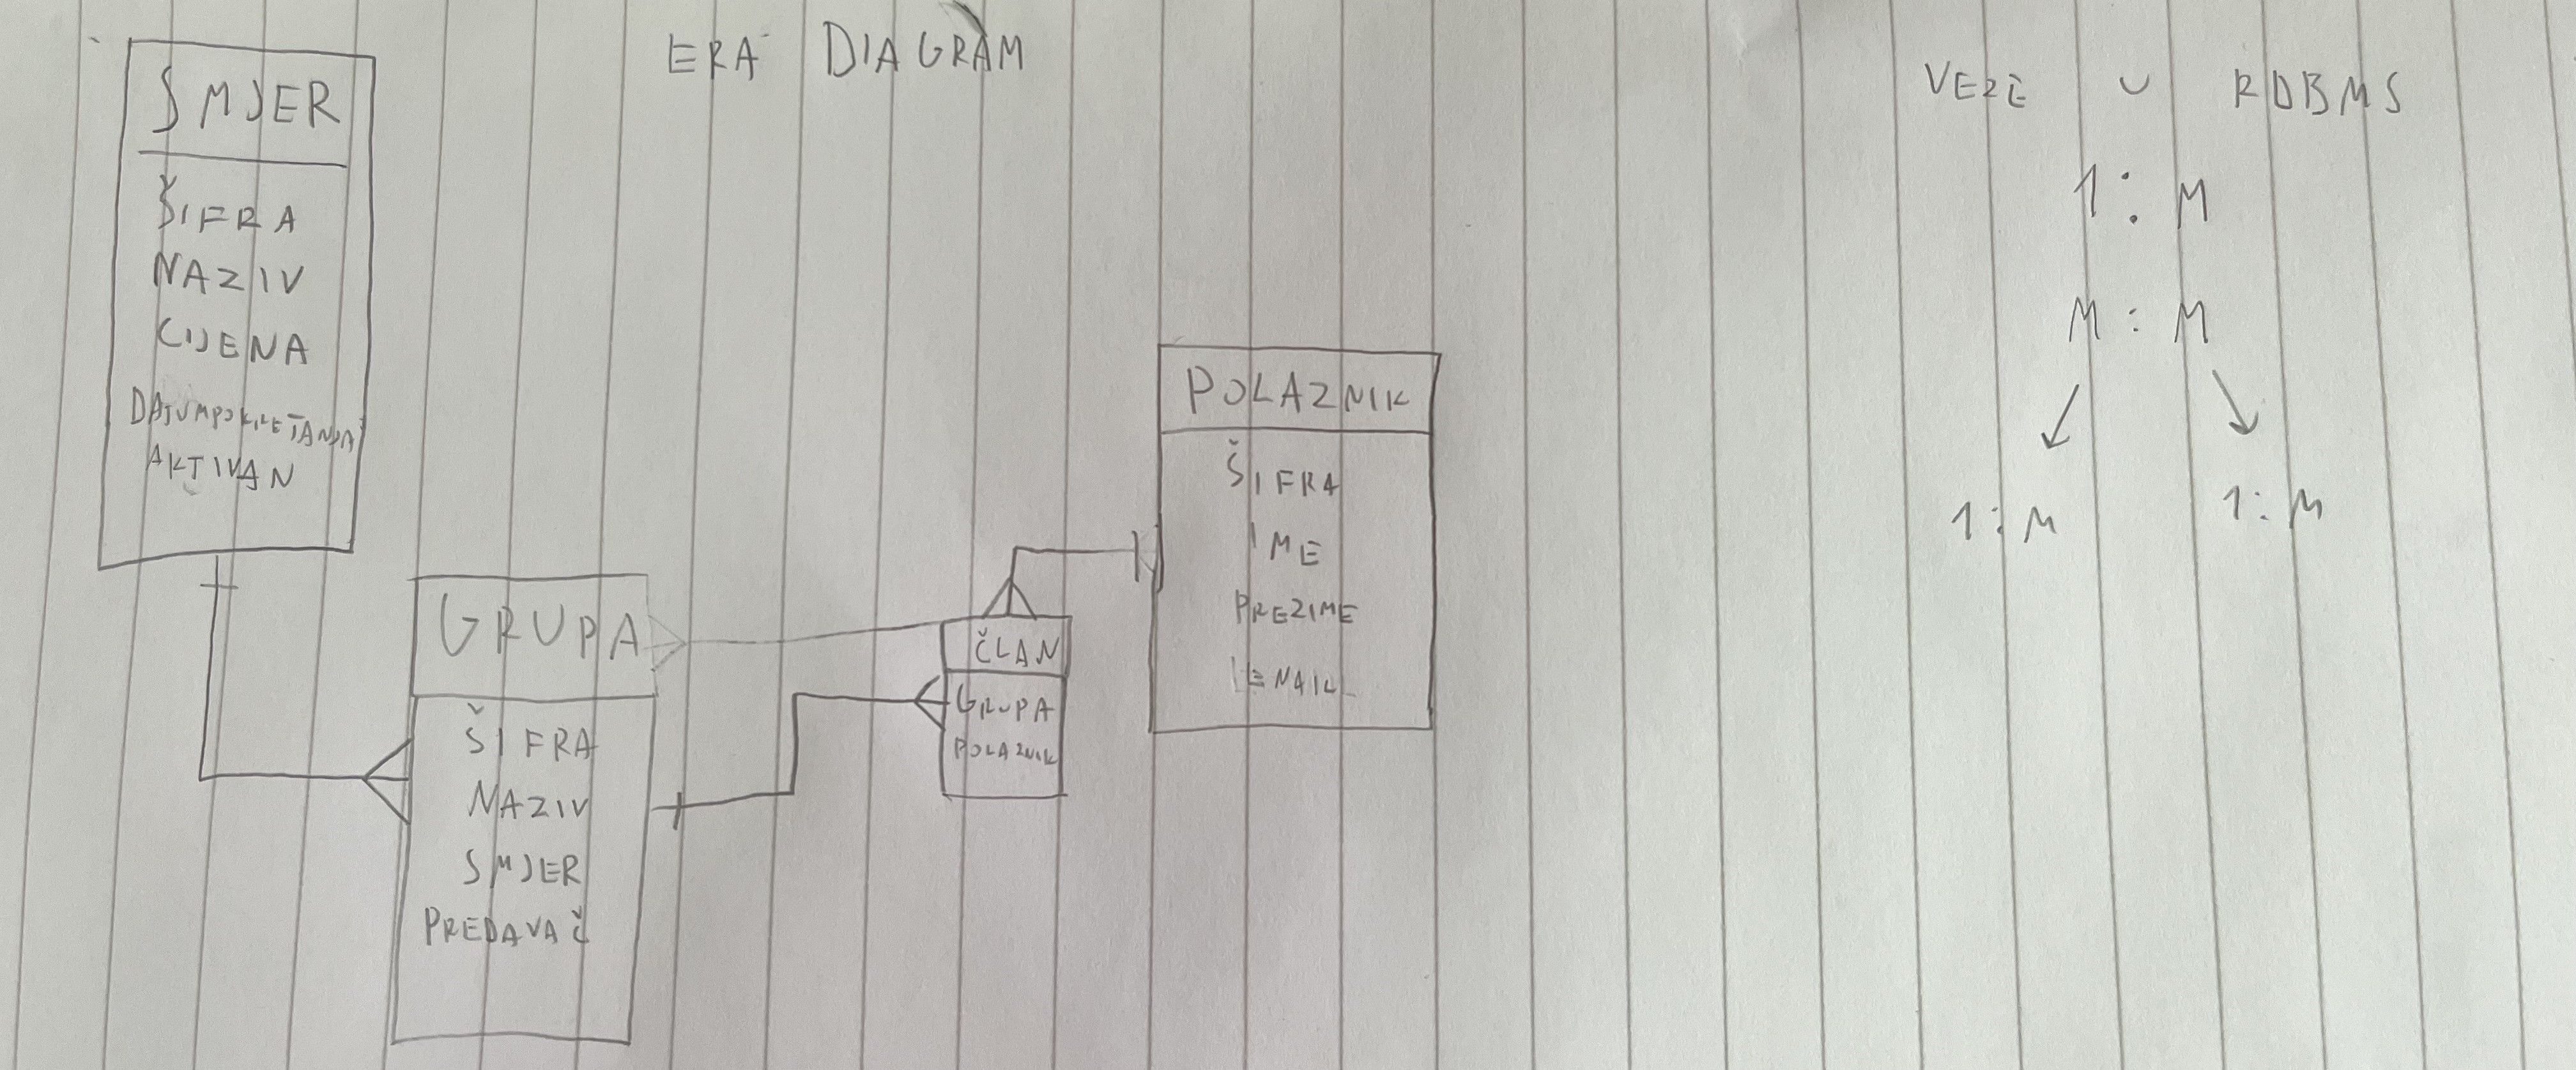 ERA DIAGRAM
SMJER
ŠIFRA
NAZIV
CIJENA
DATUMPOKRETANJA
AKTIVAN
GRUPA
ŠIFRA
NAZIV
SMJER
PREDAVAČ
ČLAN
GRUPA
POLAZNIK
POLAZNIK
ŠIFRA
IME
PREZIME
EMAIL
VEZE U RDBMS
1 : M
M : M
1 : M
1 : M